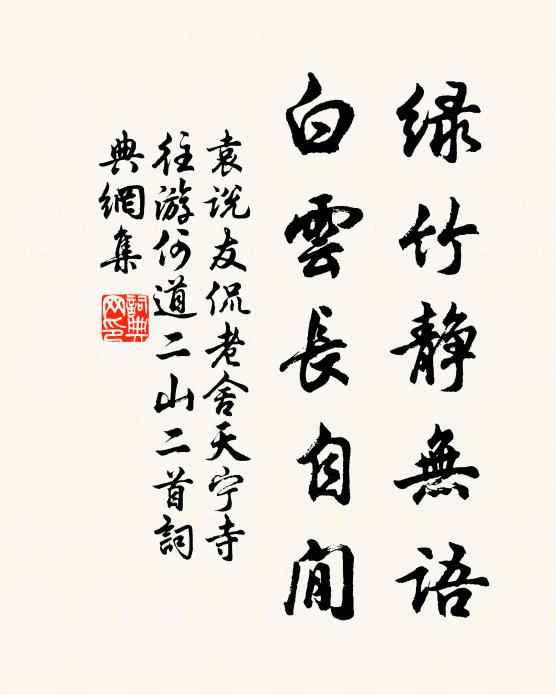 绿竹静無語
白雲長自閒
袁说友侃老舍天宁寺
往游何道二山二首詞
典網集
詞典
网印